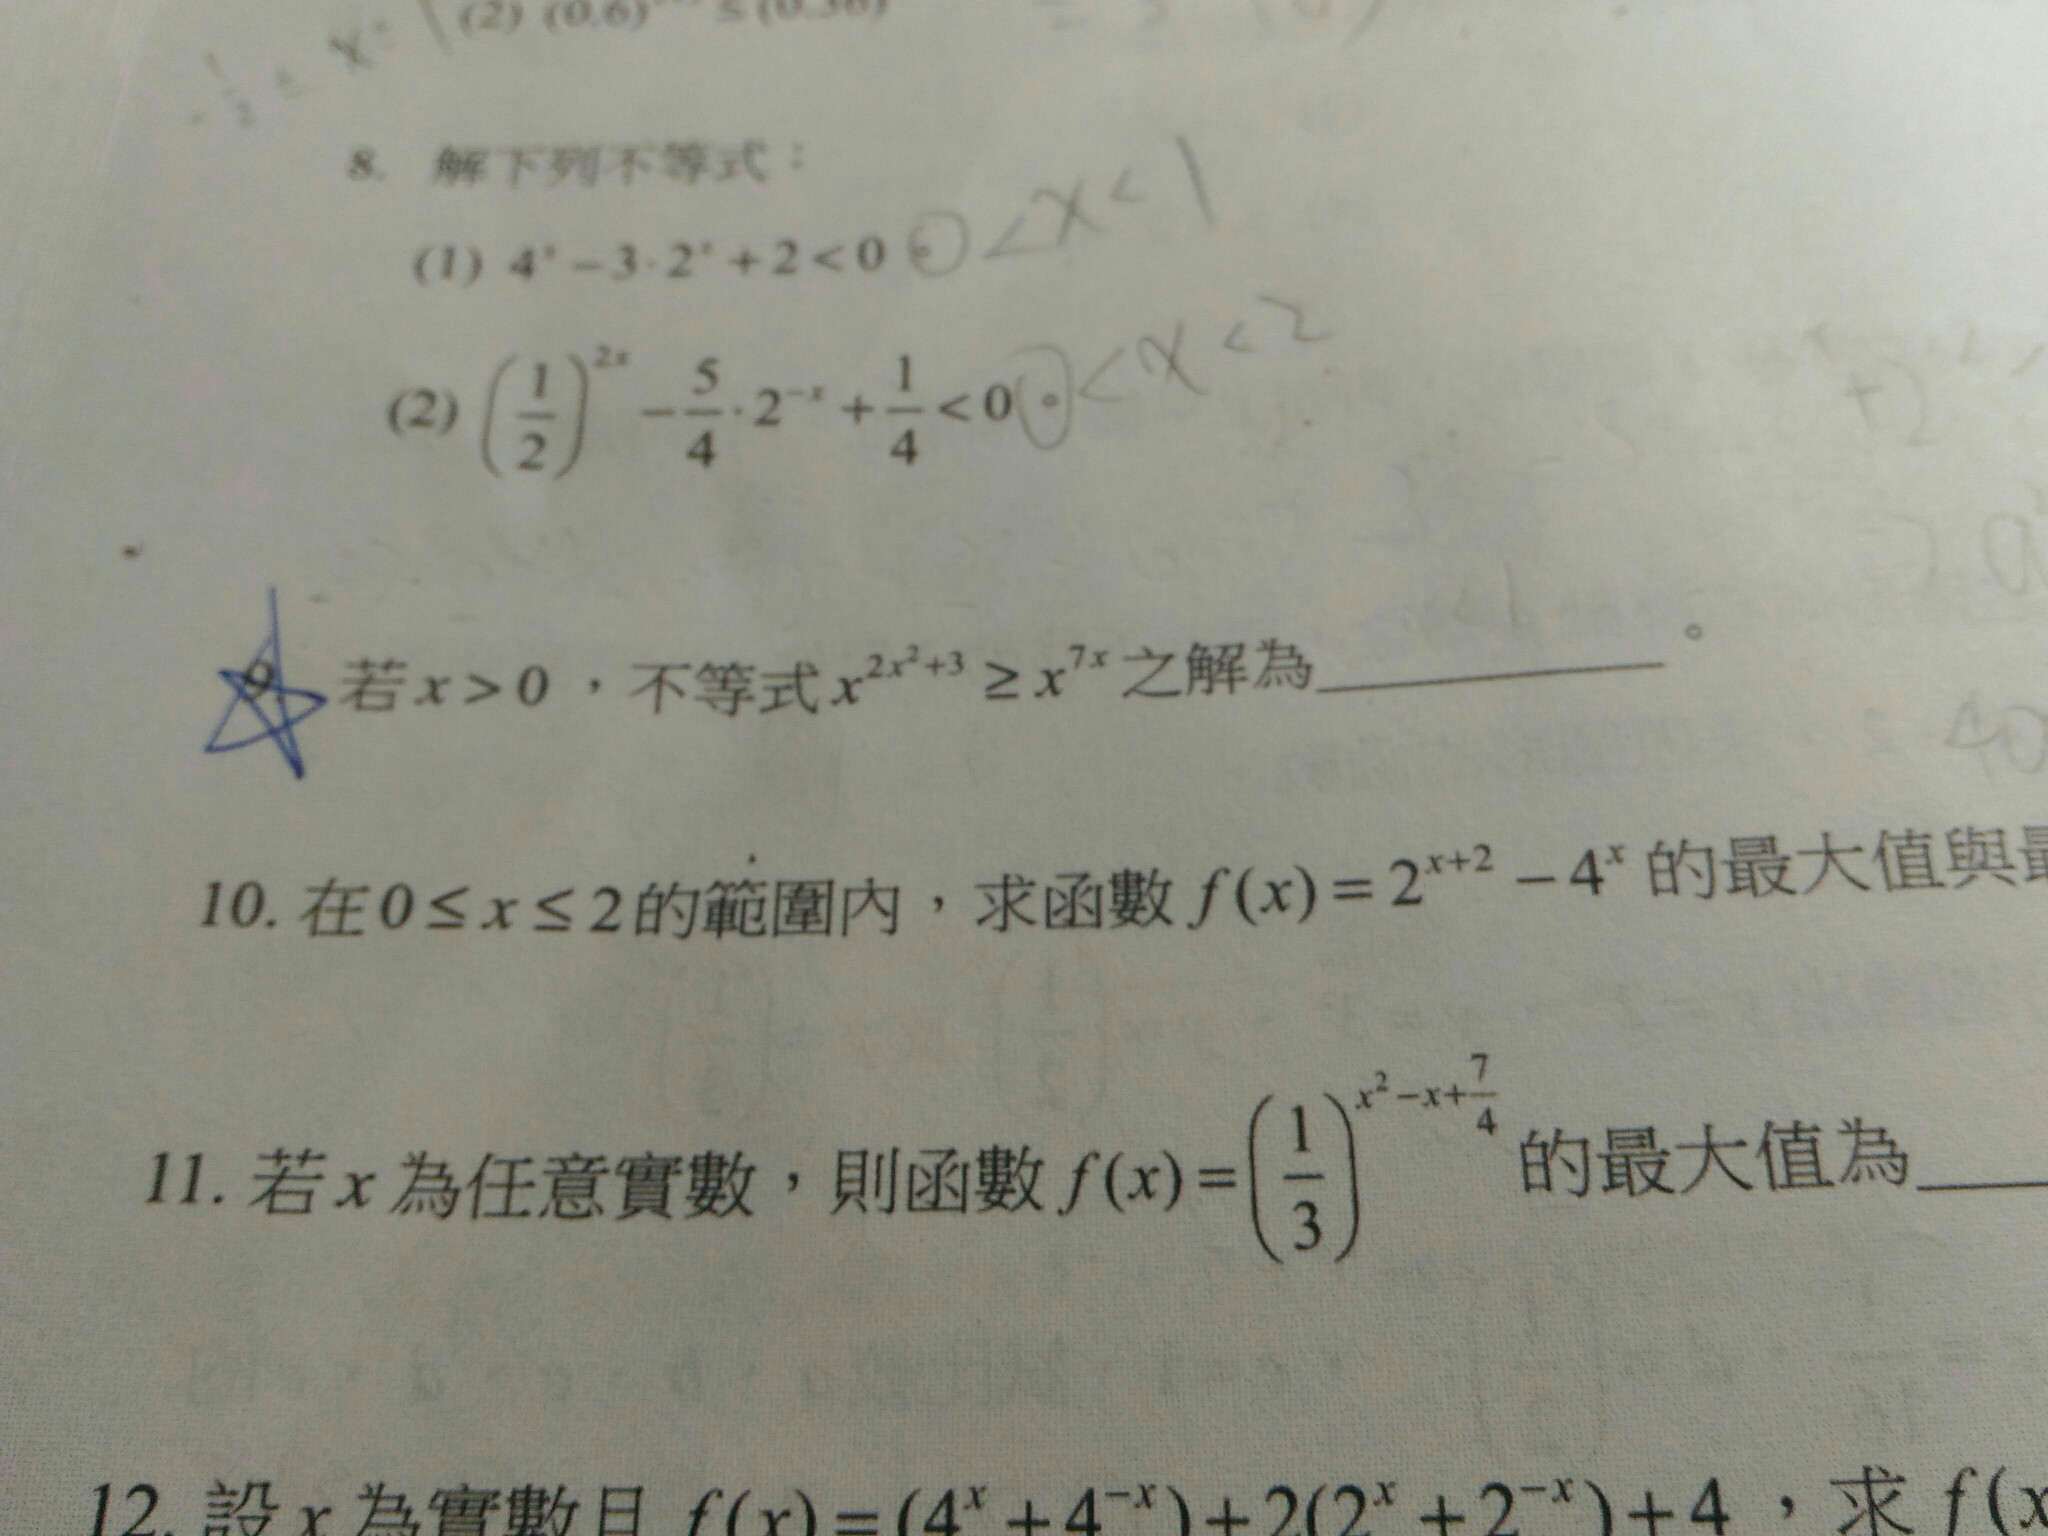 (2) (0.6) ≤ (0.36)
8. 解下列不等式：
(1) 4ˣ − 3·2ˣ + 2 < 0。 0 < x < 1
(2) (1/2)²ˣ − 5/4 · 2⁻ˣ + 1/4 < 0。 0 < x < 2
9. 若 x > 0，不等式 x^(2x²+3) ≥ x^(7x) 之解為________。
10. 在 0 ≤ x ≤ 2 的範圍內，求函數 f(x) = 2^(x+2) − 4ˣ 的最大值與
11. 若 x 為任意實數，則函數 f(x) = (1/3)^(x²−x+7/4) 的最大值為____
12. 設 x 為實數且 f(x) = (4ˣ + 4⁻ˣ) + 2(2ˣ + 2⁻ˣ) + 4，求 f(x